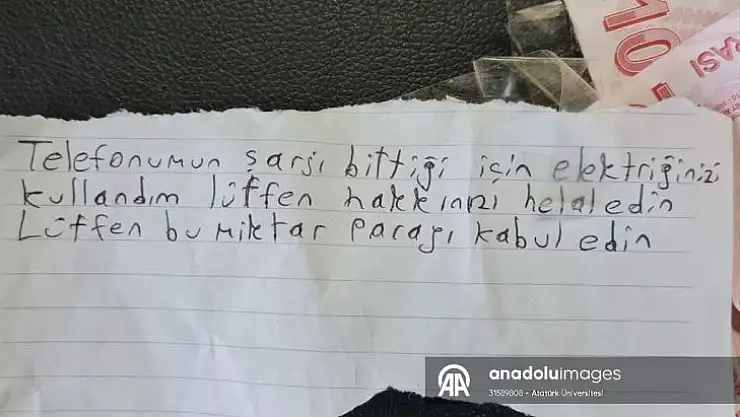 10
RASI
Telefonumun şarjı bittiği için elektriğinizi
kullandım lütfen hakkınızı helal edin
Lütfen bu miktar parayı kabul edin
AA anadoluimages
31589808 - Atatürk Üniversitesi